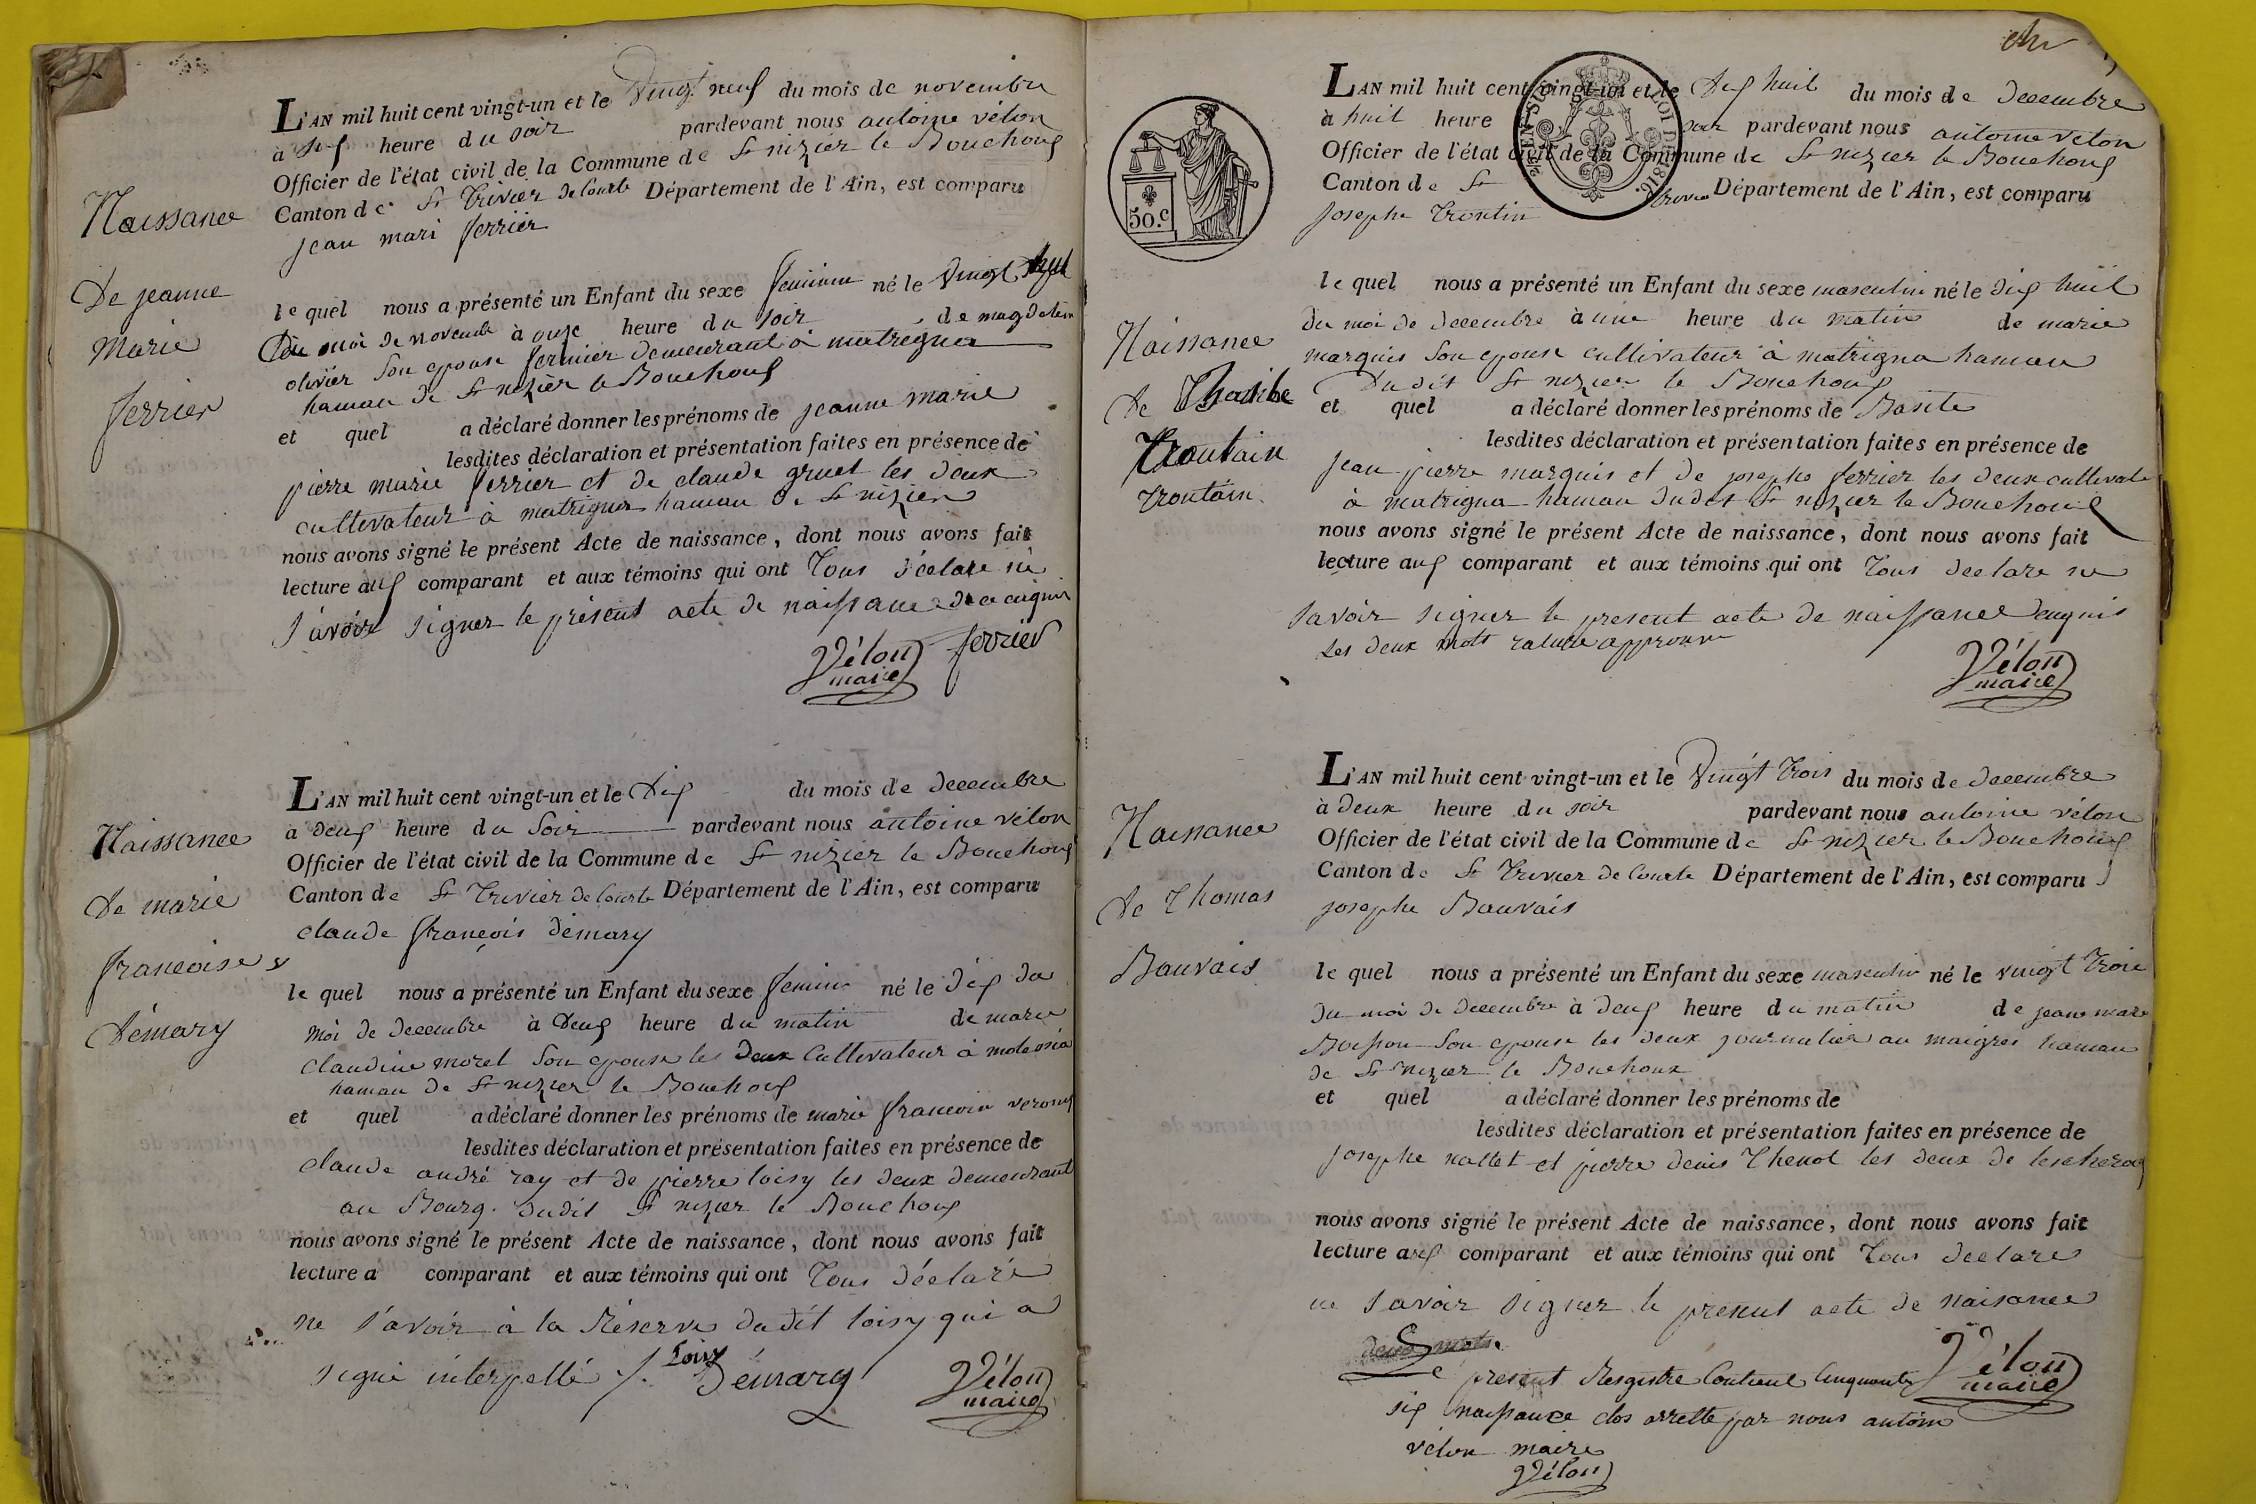 L'AN mil huit cent vingt-un et le Vingt neuf du mois de novembre
à heure du soir pardevant nous antoine vélon
Officier de l'état civil de la Commune de St nizier le Bouchoux
Canton de St Trivier de Courte Département de l'Ain, est comparu
jean mari ferrier
Naissance
De jeanne
Marie
ferrier
le quel nous a présenté un Enfant du sexe feminin né le Vingt
du moi de novembre à onze heure du soir de magdelein
olivier son epouse fermier demeurant à matrigna
hamau de St nizier le Bouchoux
et quel a déclaré donner les prénoms de jeanne marie
lesdites déclaration et présentation faites en présence de
pierre marie ferrier et de claude gruet les deux
cultivateur à matrigna hamau de St nizier
nous avons signé le présent Acte de naissance, dont nous avons fait
lecture aux comparant et aux témoins qui ont Tous déclare ne
savoir signer le présent acte de naissance de ce enquis
Vélon maire ferrier
L'AN mil huit cent vingt-un et le Dix du mois de decembre
à deux heure du Soir pardevant nous antoine vélon
Officier de l'état civil de la Commune de St nizier le Bouchoux
Canton de St Trivier de Courte Département de l'Ain, est comparu
claude françois démary
Naissance
De marie
francoise
Démary
le quel nous a présenté un Enfant du sexe feminin né le dix du
moi de decembre à Deux heure du matin de marie
claudine morel son epouse les deux Cultivateur à
hamau de St nizier le Bouchoux
et quel a déclaré donner les prénoms de marie
lesdites déclaration et présentation faites en présence de
claude andré ray et de pierre loisy les deux demeurant
au Bourg dudit St nizier le Bouchoux
nous avons signé le présent Acte de naissance, dont nous avons fait
lecture a comparant et aux témoins qui ont Tous déclaré
ne savoir à la Réserve dudit loisy qui a
signé interpellé Loisy Démary Vélon maire
L'AN mil huit cent vingt-un et le Dix huit du mois de decembre
à huit heure pardevant nous antoine vélon
Officier de l'état civil de la Commune de St nizier le Bouchoux
Canton de St Département de l'Ain, est comparu
josephe Trontin
50.C
1816.
Naissance
De
Troutain
Troutain
le quel nous a présenté un Enfant du sexe masculin né le dix huit
du moi de decembre à une heure du matin de marie
marquis son epouse cultivateur à matrigna hamau
Dudit St nizier le Bouchoux
et quel a déclaré donner les prénoms de
lesdites déclaration et présentation faites en présence de
jean pierre marquis et de josephe ferrier les deux cultivate
à matrigna hamau dudit St nizier le Bouchoux
nous avons signé le présent Acte de naissance, dont nous avons fait
lecture aux comparant et aux témoins qui ont Tous declare ne
savoir signer le present acte de naissance enquis
Les deux mots rature approuve
Vélon maire
L'AN mil huit cent vingt-un et le Vingt trois du mois de decembre
à deux heure du soir pardevant nous antoine vélon
Officier de l'état civil de la Commune de St nizier le Bouchoux
Canton de St Trivier de Courte Département de l'Ain, est comparu
josephe Bauvais
Naisance
De Thomas
Bauvais
le quel nous a présenté un Enfant du sexe masculin né le vingt trois
du moi de decembre à deux heure du matin de jeane marie
son epouse les deux journalier au maigres hamau
de St nizier le Bouchoux
et quel a déclaré donner les prénoms de
lesdites déclaration et présentation faites en présence de
josephe nallet et pierre denis Thenot les deux de
nous avons signé le présent Acte de naissance, dont nous avons fait
lecture aux comparant et aux témoins qui ont Tous declare
ne savoir signer le present acte de naisance
deux mots
Le present Registre Contient Cinquante Vélon maire
six naissance clos arretté par nous antoine
vélon maire
Vélon